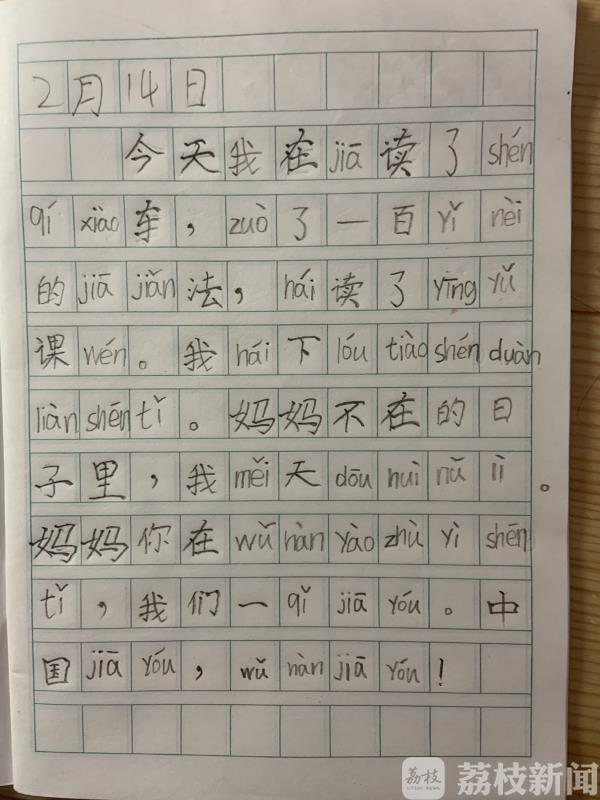 2月14日
今天我在jiā读了shén
qí xiào车，zuò了一百yǐ nèi
的jiā jiǎn法，hái读了yīng yǔ
课wén。我hái下lóu tiào shén duàn
liàn shēn tǐ。妈妈不在的日
子里，我měi天dōu huì nǔ lì。
妈妈你在wǔ hàn yào zhù yì shēn
tǐ，我们一qǐ jiā yóu。中
国jiā yóu，wǔ hàn jiā yóu！
荔枝
LITCHI NEWS
荔枝新闻